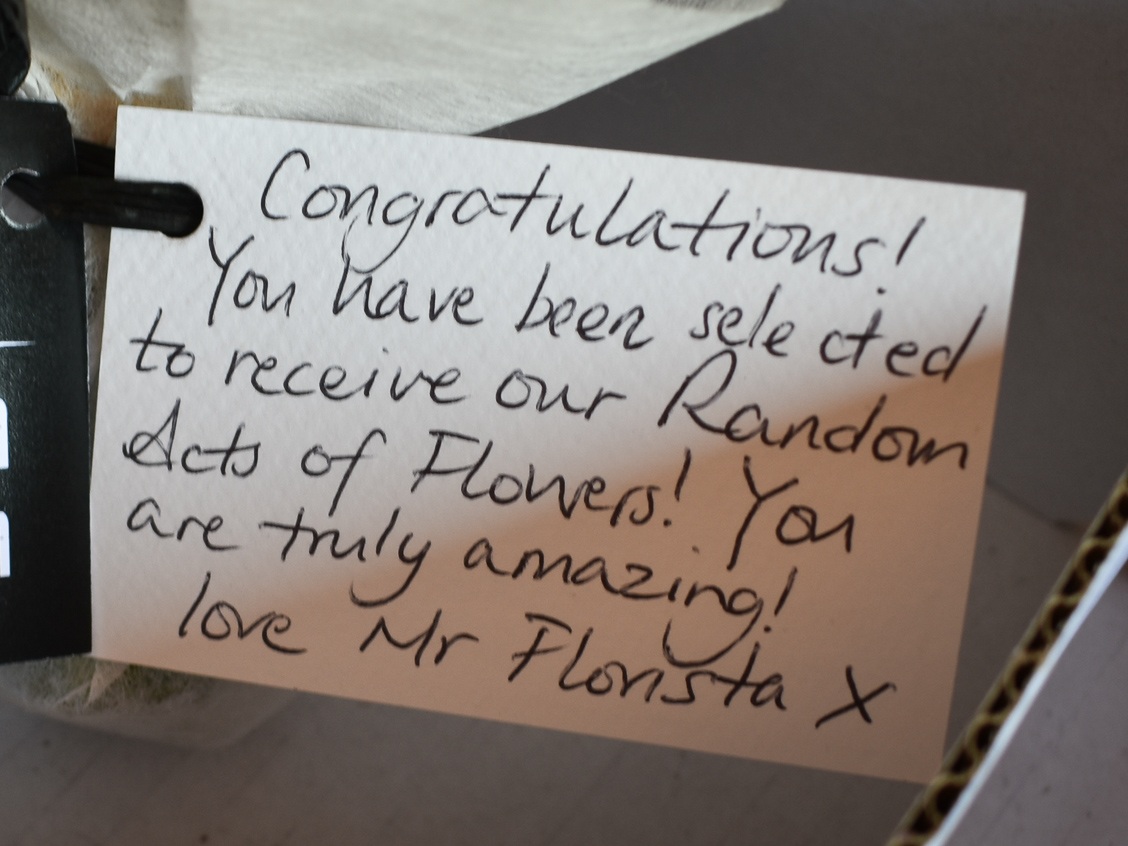 Congratulations!
You have been selected
to receive our Random
Acts of Flowers! You
are truly amazing!
love Mr Florista X